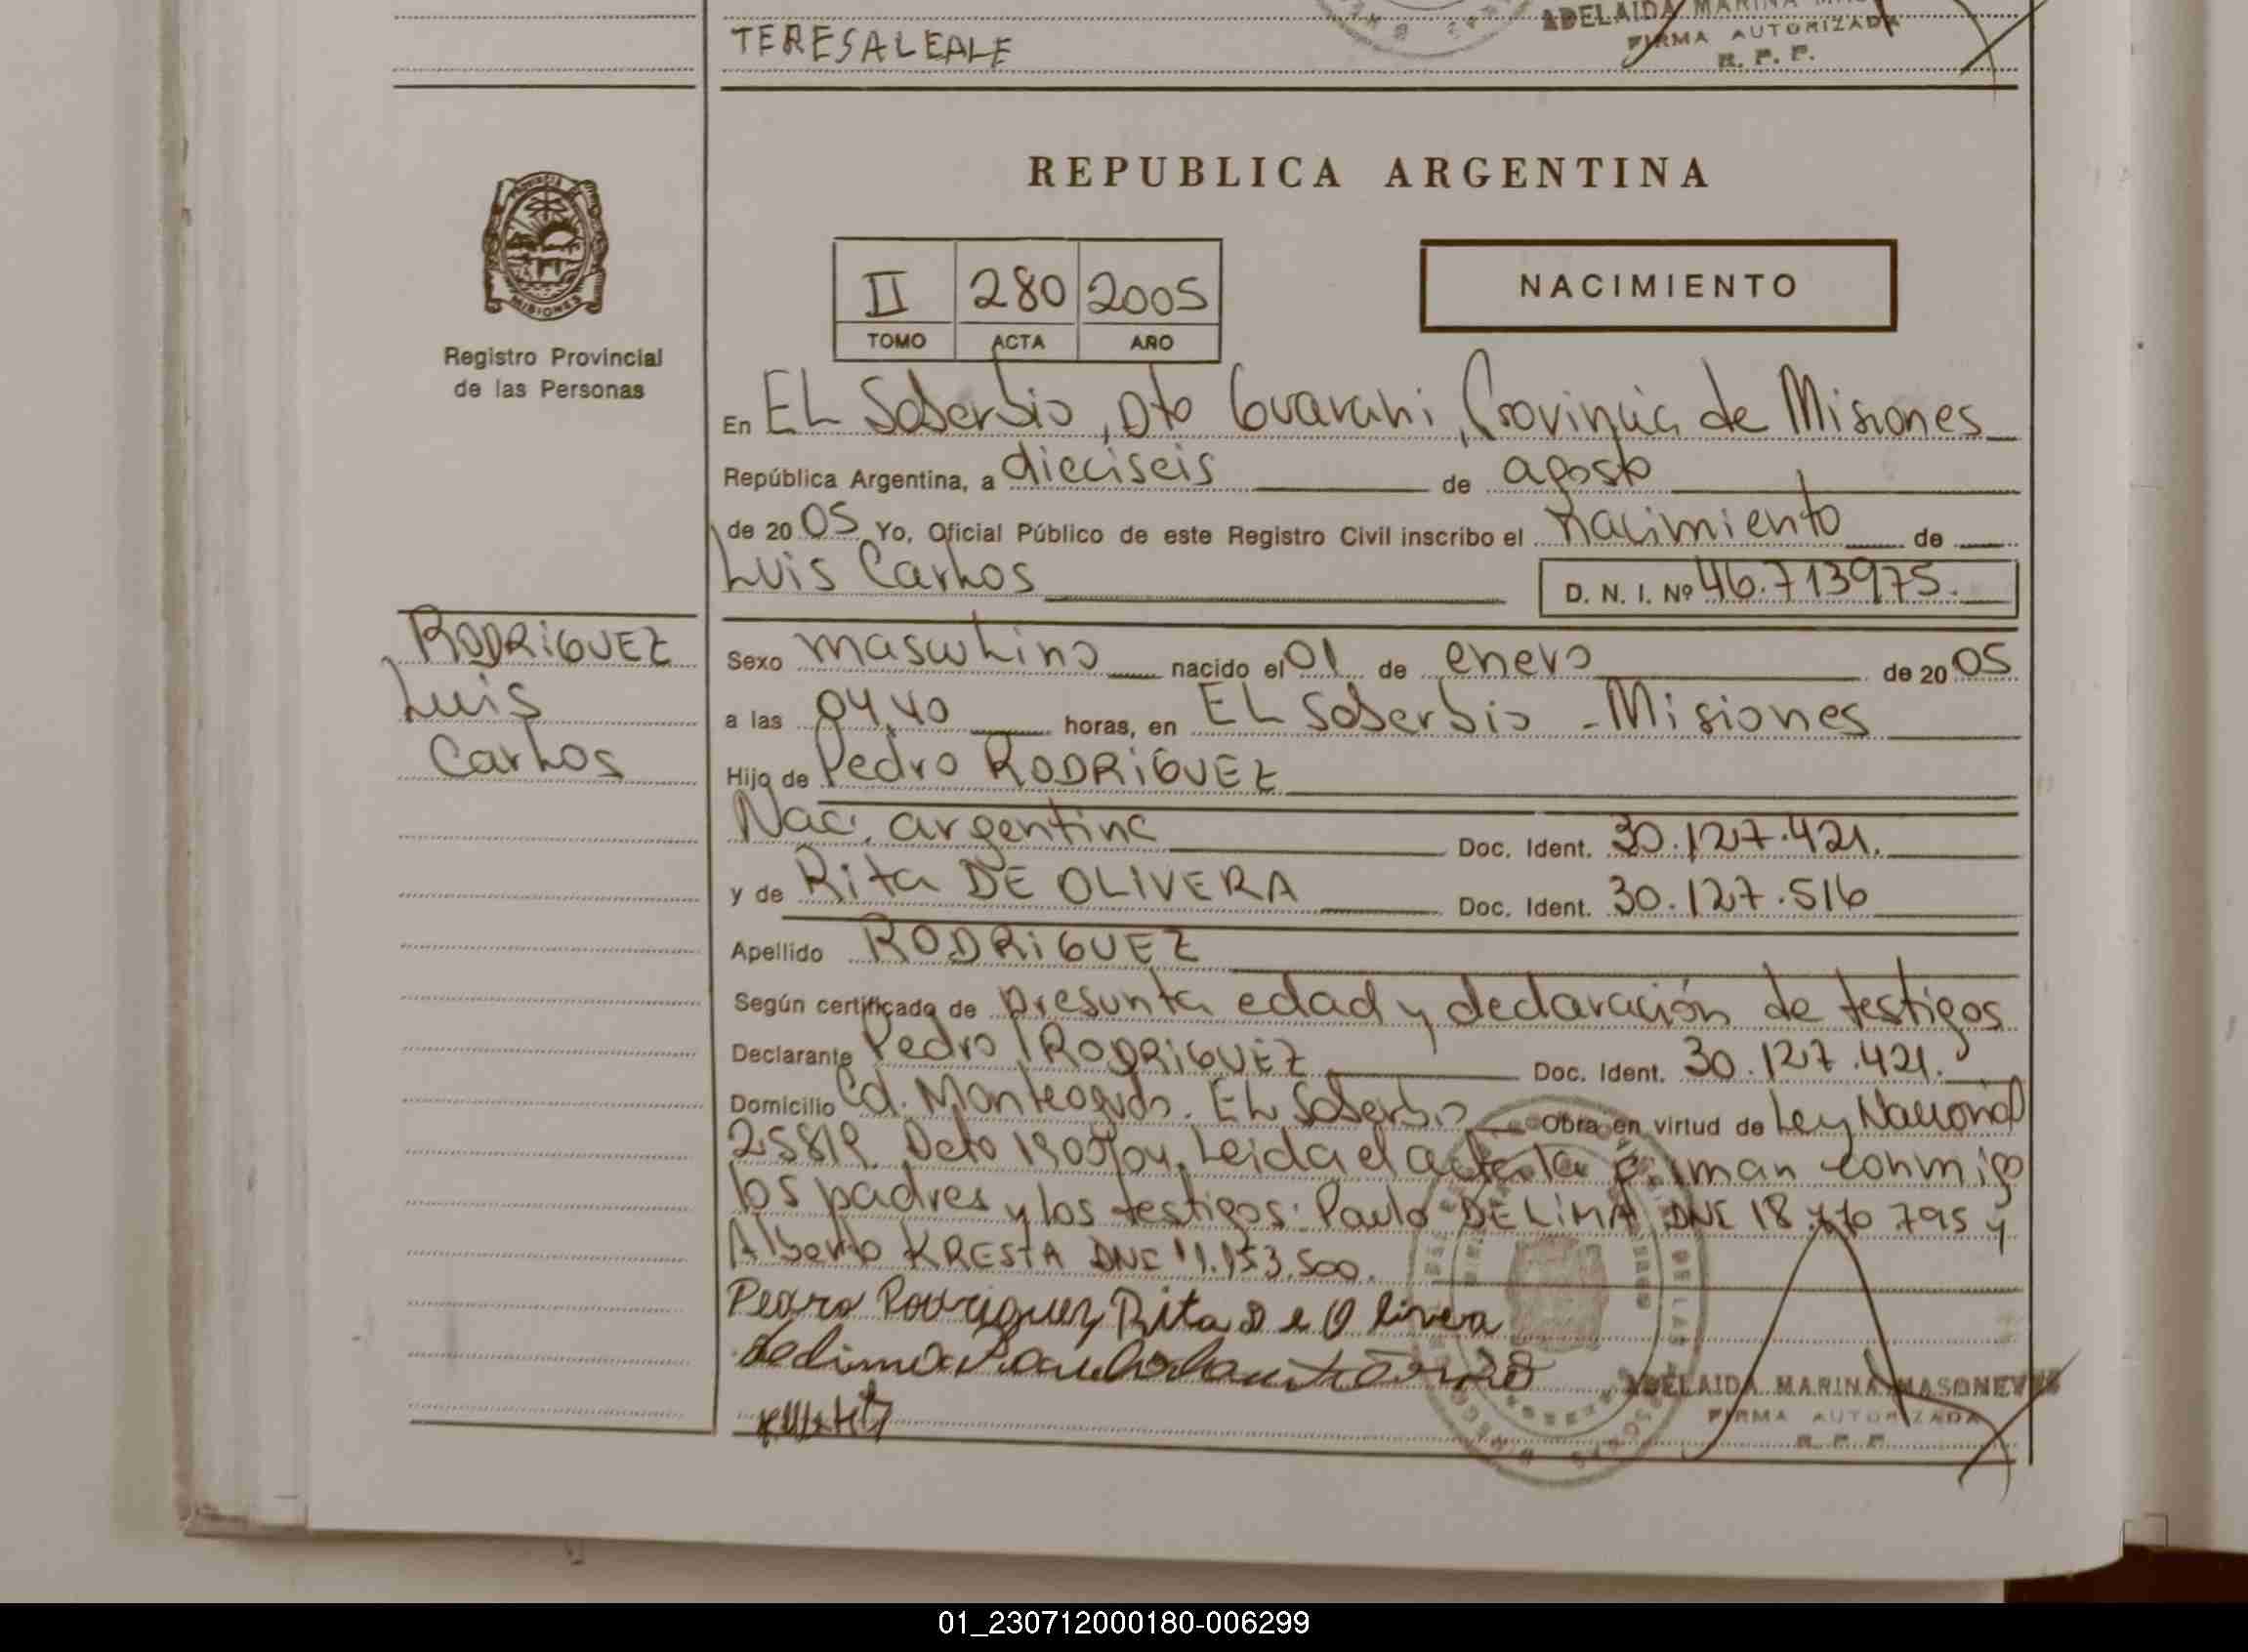 TERESALEALE
ADELAIDA MARINA
FIRMA AUTORIZADA
R. P. P.
REPUBLICA ARGENTINA
II 280 2005
TOMO ACTA AÑO
NACIMIENTO
PROVINCIA DE
MISIONES
Registro Provincial
de las Personas
En EL Soberbio, Dto Guarani, Provincia de Misiones
República Argentina, a dieciseis de agosto
de 2005 Yo, Oficial Público de este Registro Civil inscribo el nacimiento de
Luis Carlos D. N. I. Nº 46.713975.
RODRiGUEZ
Luis
Carlos
Sexo masculino nacido el 01 de enero de 2005
a las 04,40 horas, en EL Soberbio - Misiones
Hijo de Pedro RODRiGUEZ
Nac. argentina Doc. Ident. 30.127.421.
y de Rita DE OLIVERA Doc. Ident. 30.127.516
Apellido RODRiGUEZ
Según certificado de presunta edad y declaración de testigos
Declarante Pedro RODRiGUEZ Doc. Ident. 30.127.421.
Domicilio Cd. Monteagudo. EL Soberbio Obra en virtud de Ley Nacional
25819 Dcto Leida el acta la firman conmigo
los padres y los testigos: Paulo DE LiMA DNI 18 795 y
Alberto KRESTA DNI 11.153.500.
Pedro Rodriguez Rita De Olivera
de Lima
ADELAIDA MARINA MASONEVES
FIRMA AUTORIZADA
R. P. P.
01_230712000180-006299